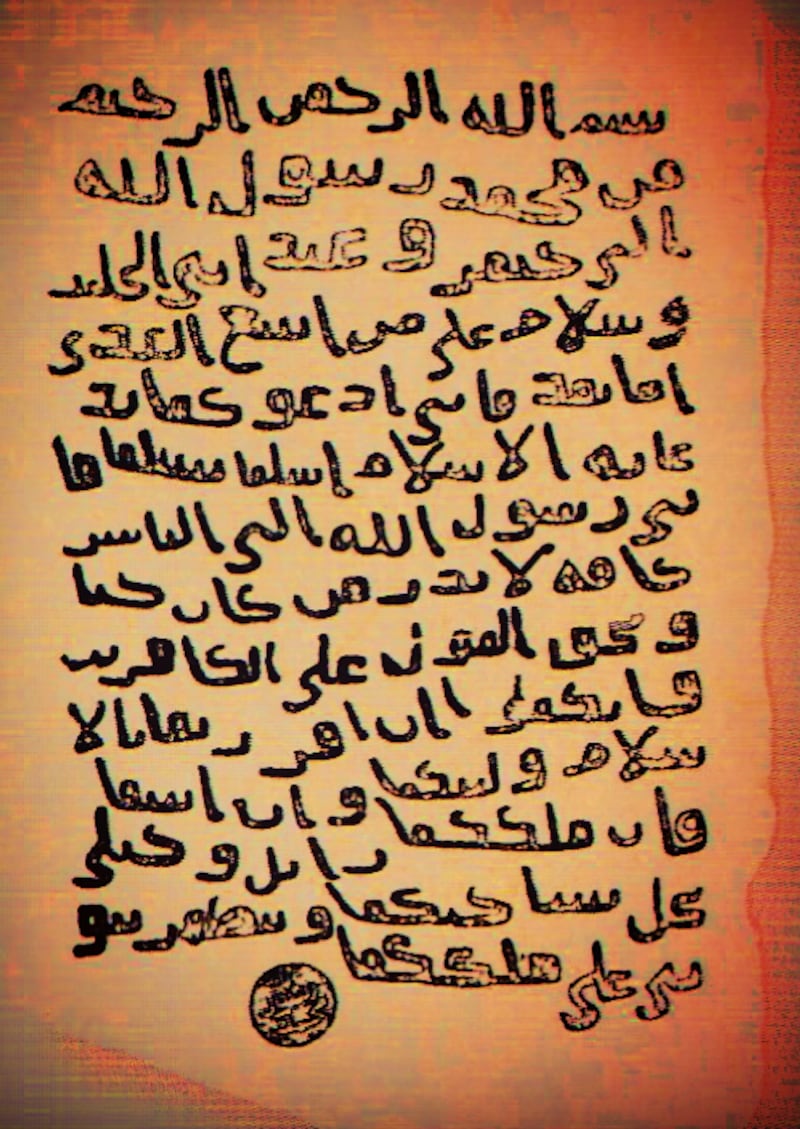 بسم الله الرحمن الرحيم
من محمد رسول الله
الى جيفر و عبد ابنى الجلند
و سلام على من اتبع الهدى
اما بعد فانى ادعو كما بد
عايه الاسلام اسلما تسلما فا
نى رسول الله الى الناس
كافه لانذر من كان حيا
و يحق القول على الكافرين
فانكما ان اقر ر تما با لا
سلام و ليتكما و ان ابيتما
فان ملككما زائل و خيلى
تحل بساحتكما و تظهر نبو
تى على ملككما